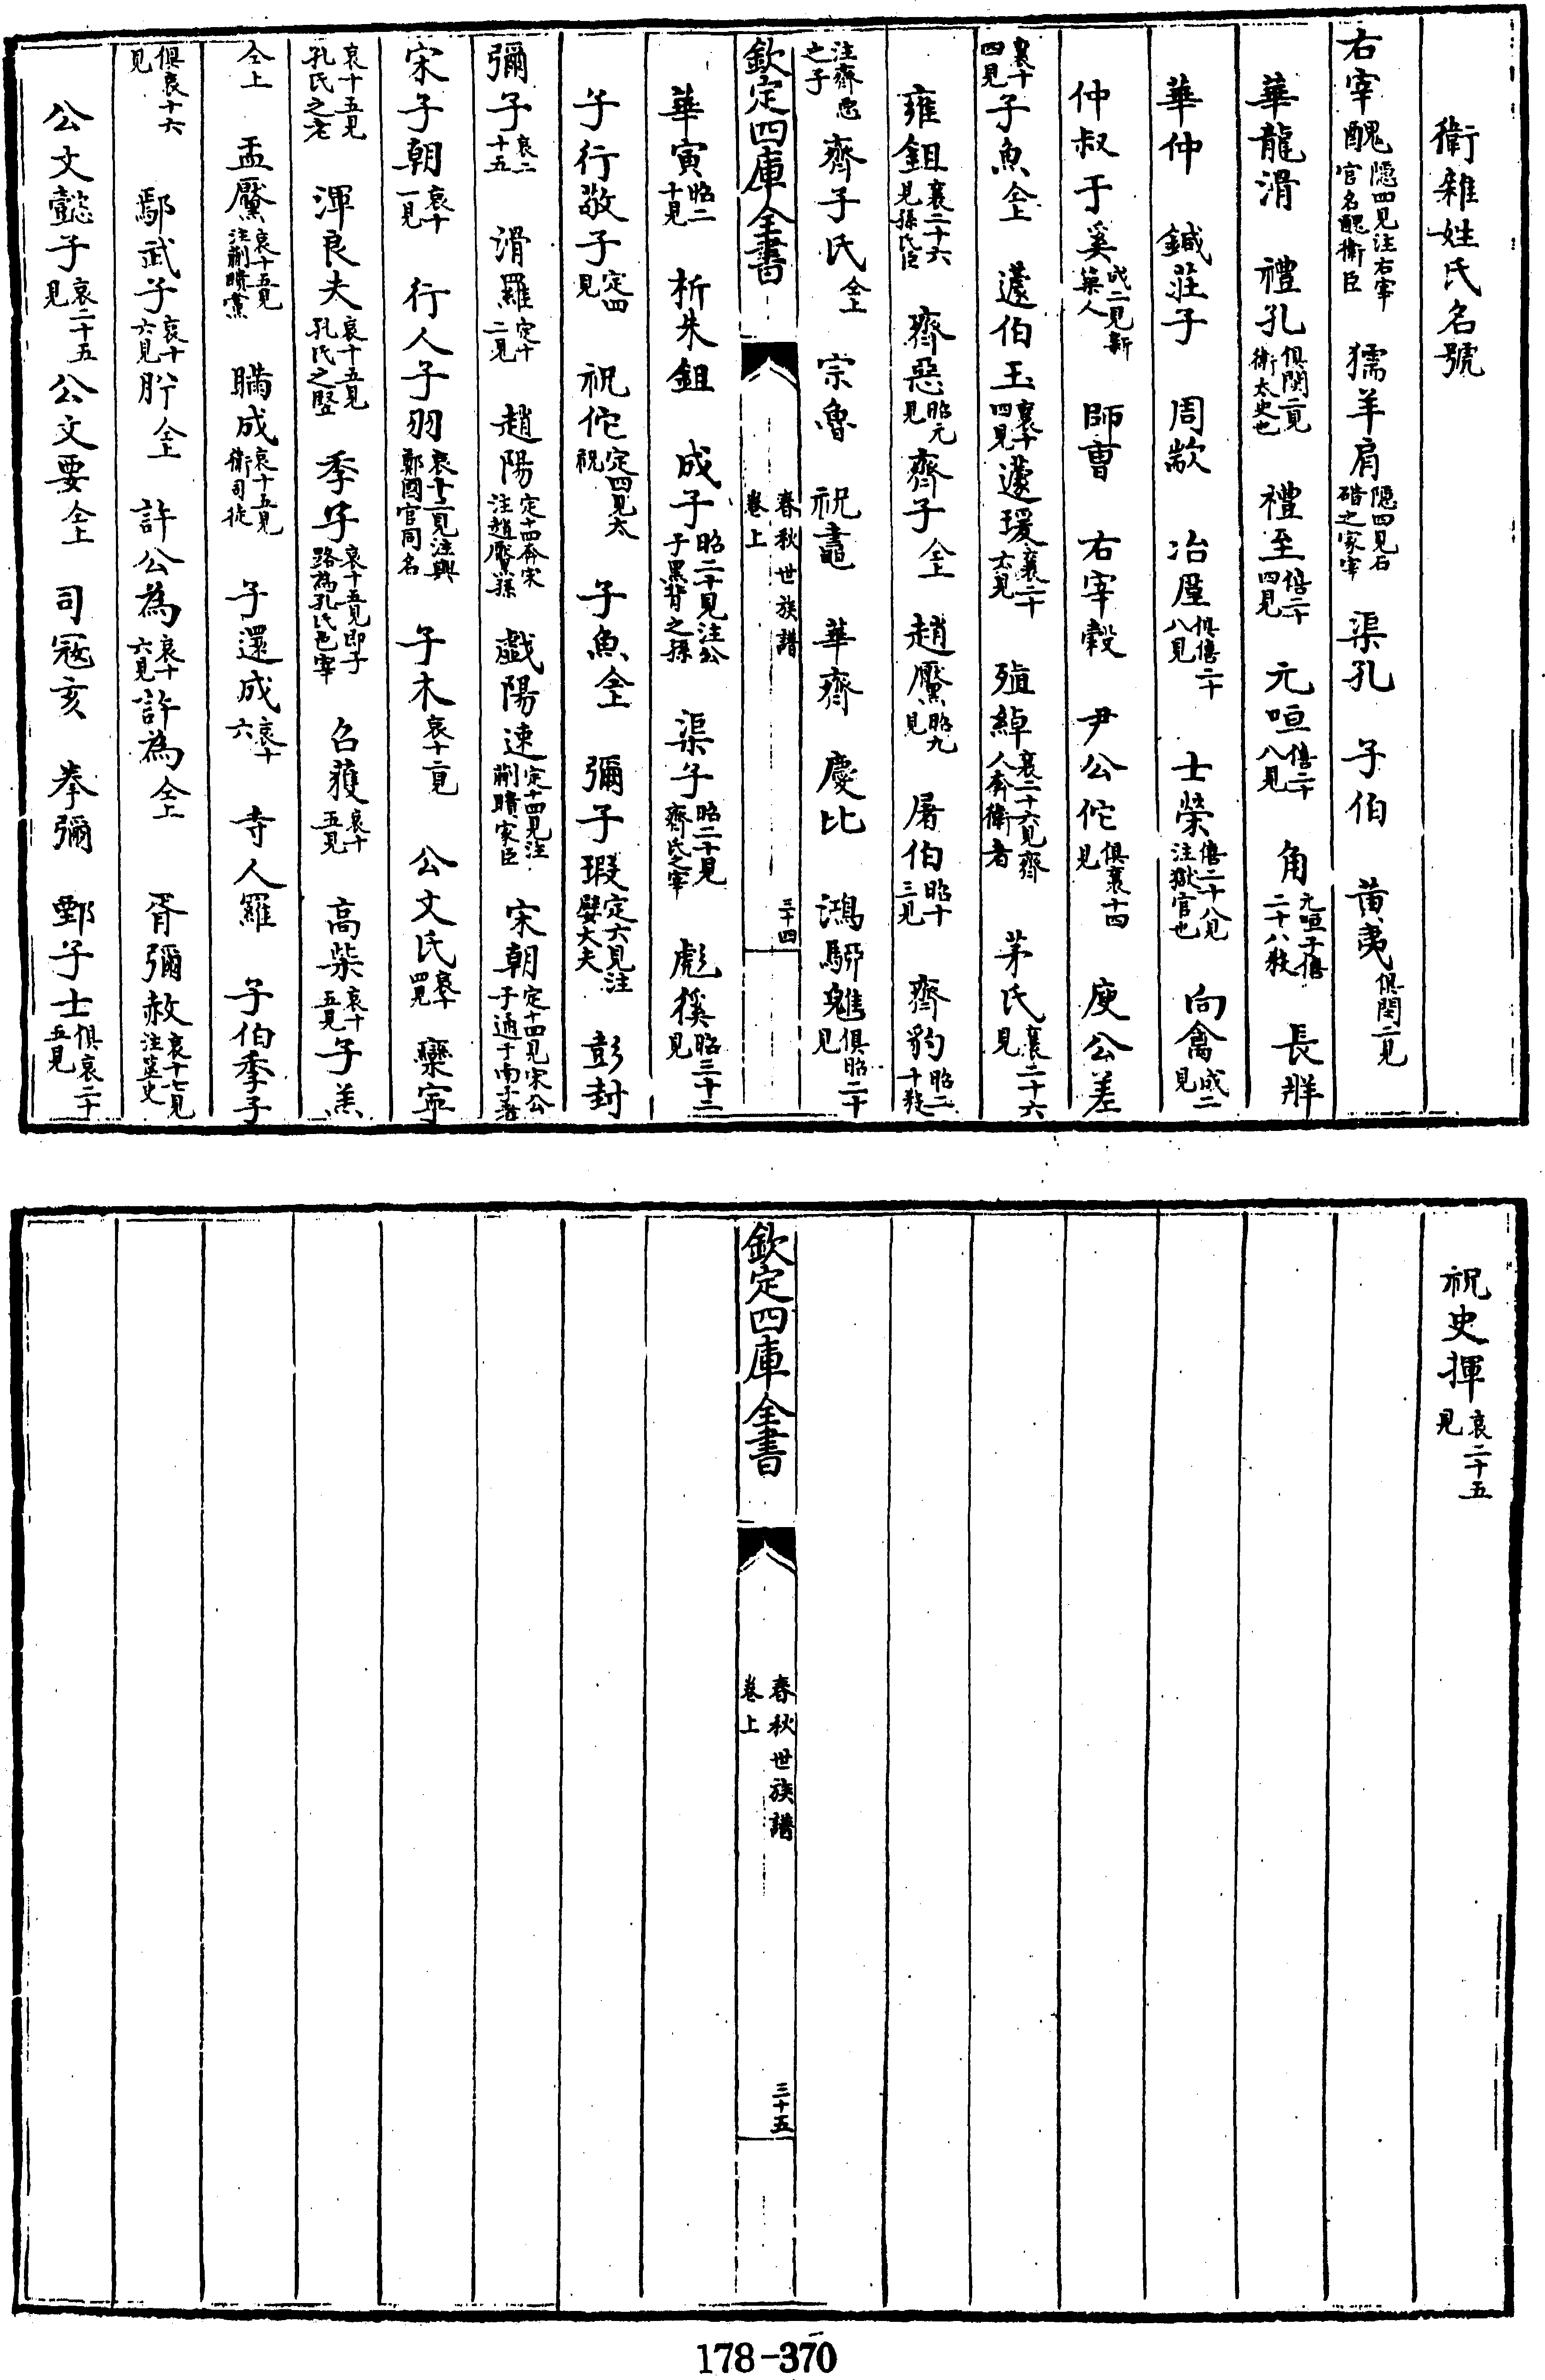 衛雜姓氏名號
右宰醜隱四見注右宰官名醜衛臣　獳羊肩隱四見石碏之家宰　渠孔　子伯　黃夷俱閔二見
華龍滑　禮孔俱閔二見衛太史也　禮至僖二十四見　元咺僖二十八見　角元咺子僖二十八殺　長牂
華仲　鍼莊子　周歂　冶廑俱僖三十八見　士榮僖二十八見注獄官也　向禽成二見
仲叔于奚成二見新築人　師曹　右宰穀　尹公佗俱襄十四見　庾公差
襄十四見子魚仝上　蘧伯玉襄十四見蘧瑗襄二十六見　殖綽襄二十六見齊人奔衛者　茅氏襄二十六見
雍鉏襄二十六見孫氏臣　齊惡昭元見齊子仝上　趙黶昭九見　屠伯昭十三見　齊豹昭二十殺
注齊惡之子　齊子氏仝上　宗魯　祝鼃　華齊　慶比　鴻駵魋俱昭二十見
欽定四庫全書　春秋世族譜卷上　三十四
華寅昭二十見　析朱鉏　成子昭二十見注公子黑背之孫　渠子昭二十見齊氏之宰　彪傒昭三十二見
子行敬子定四見　祝佗定四見太祝　子魚仝上　彌子瑕定六見注嬖大夫　彭封
彌子哀二十五　滑羅定十二見　趙陽定十四奔宋注趙黶孫　戲陽速定十四見注蒯聵家臣　宋朝定十四見宋公子通于南子者
宋子朝哀十一見　行人子羽哀十二見注與鄭國官同名　子木哀十二見　公文氏哀十四見　欒寧
哀十五見孔氏之老　渾良夫哀十五見孔氏之豎　季子哀十五見即子路為孔氏邑宰　召獲哀十五見　高柴哀十五見子羔
仝上　盂黶哀十五見注蒯聵黨　瞞成哀十五見衛司徒　子還成哀十六　寺人羅　子伯季子
俱哀十六見　鄢武子哀十六見肸仝上　許公為哀十六見許為仝上　胥彌赦哀十七見注筮史
公文懿子哀二十五見公文要仝上　司寇亥　拳彌　鄄子士俱哀二十五見
祝史揮哀二十五見
欽定四庫全書　春秋世族譜卷上　三十五
178-370